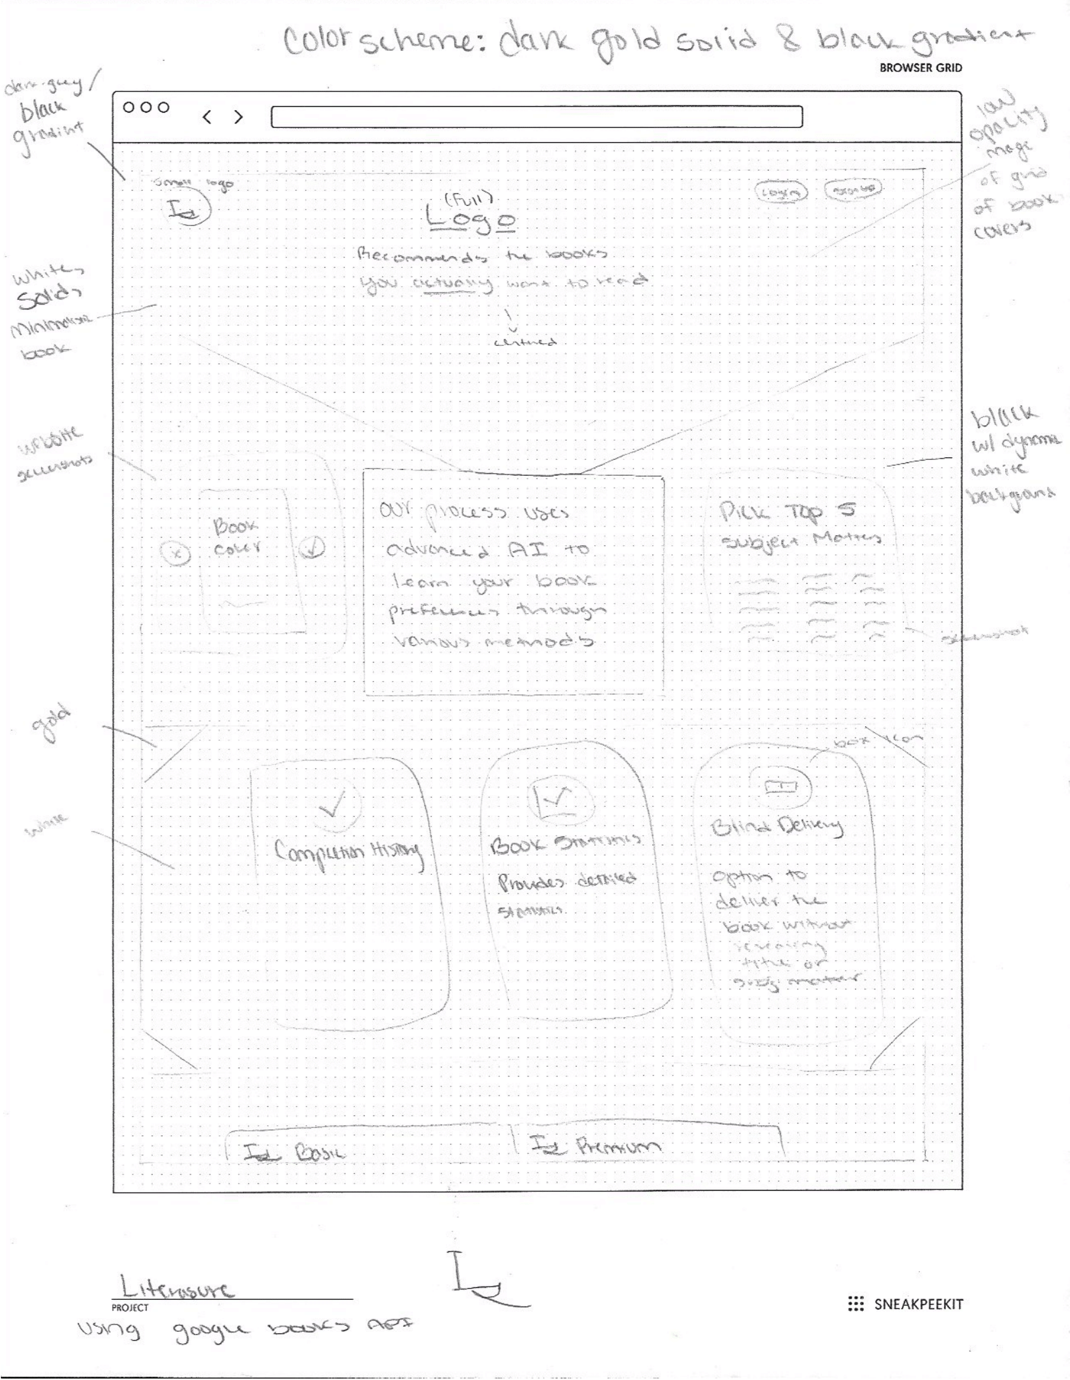 Color scheme: dark gold solid & black gradient
BROWSER GRID
dark-grey/
black
gradient
low
opacity
image
of grid
of book
covers
small logo
(Full)
Logo
Login
Recommends the books
you actually want to read
centred
white,
solids
minimalistic
book
website
screenshots
black
w/ dynamic
white
background
Book
cover
our process uses
advanced AI to
learn your book
preferences through
various methods
Pick Top 5
Subject Matters
screenshot
gold
white
box icon
Completion History
Book Statistics
Provides detailed
statistics
Blind Delivery
option to
deliver the
book without
revealing
title or
subj. matter
Basic
Premium
Literasure
PROJECT
using google books API
SNEAKPEEKIT